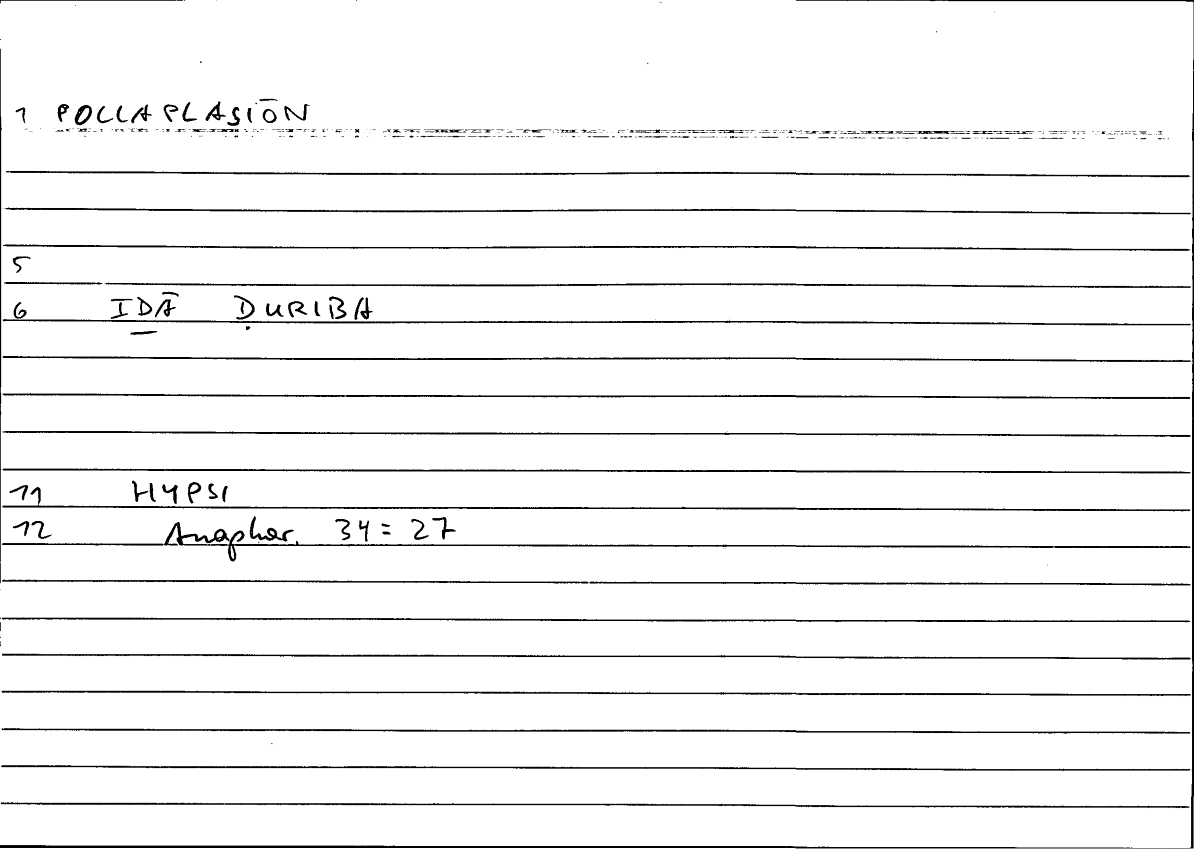 1 POLLAPLASIŌN
5
6 IḎĀ ḌURIBA
11 HYPSI
12 Anaphor. 34 = 27